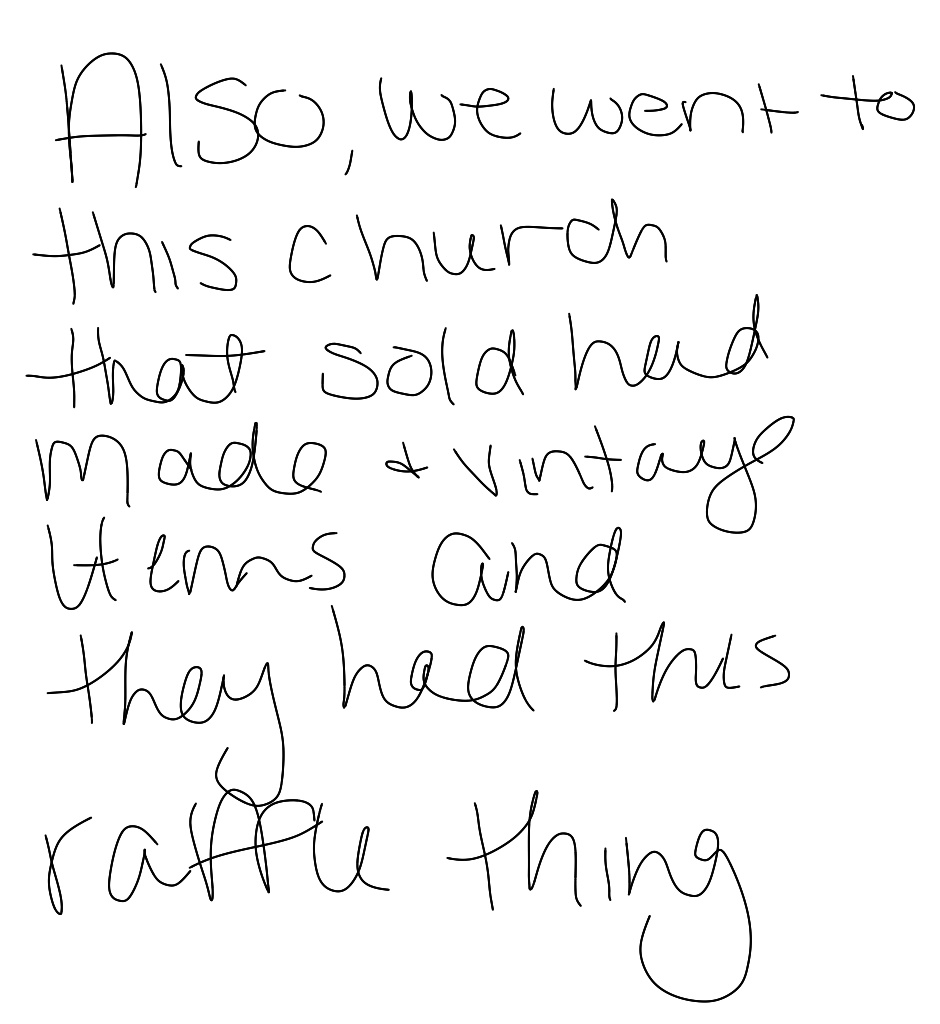 Also, we went to
this church
that sold hand
made & vintage
items and
they had this
raffle thing